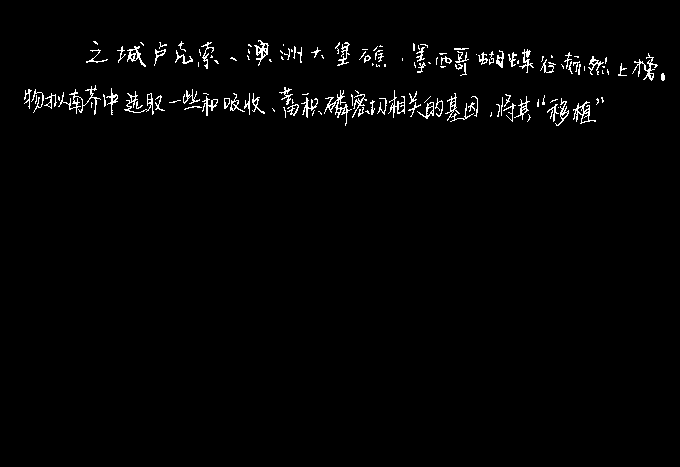 之城卢克索、澳洲大堡礁、墨西哥蝴蝶谷赫然上榜。
物拟南芥中选取一些和吸收、蓄积磷密切相关的基因，将其“移植”